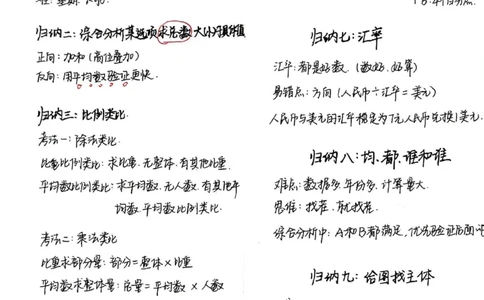 归纳二：综合分析某选项求总数
正向：加和（高位叠加）
反向：用平均数验证更快.
归纳三：比例类比
考法一：除法类比
比重比例类比：求比重. 无整体. 有其他比重.
平均数比例类比：求平均数. 无人数. 有其他平
均数. 平均数比例类比.
考法二：乘法类比
比重求部分量：部分=整体×比重
平均数求整体量：总量=平均数×人数
归纳七：汇率
汇率：都是好数.（数好. 好算）
易错点：方向（人民币÷汇率=美元）
人民币与美元的汇率稳定为7元人民币兑换1美元.
归纳八：均、都、谁和谁
难点：数据多. 年份多. 计算量大.
思维：找茬. 有就找茬.
综合分析中：A和B都满足，优先验证后面
归纳九：给图找主体